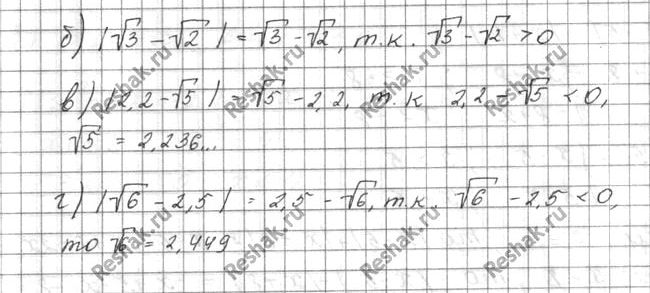 б) |√3 - √2| = √3 - √2, т.к. √3 - √2 > 0
в) |2,2 - √5| = √5 - 2,2, т.к 2,2 - √5 < 0,
√5 = 2,236...
г) |√6 - 2,5| = 2,5 - √6, т.к. √6 - 2,5 < 0,
то √6 = 2,449
Reshak.ru
Reshak.ru
Reshak.ru
Reshak.ru
Reshak.ru
Reshak.ru
Reshak.ru
Reshak.ru
Reshak.ru